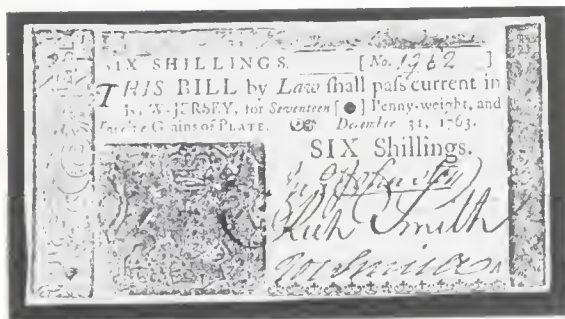 SIX SHILLINGS. [No. 1262 ]
THIS BILL by Law ſhall paſs current in
N. JERSEY, for Seventeen [●] Penny-weight, and
Twelve Grains of PLATE. December 31, 1763.
SIX Shillings.
Johnston
Rich Smith